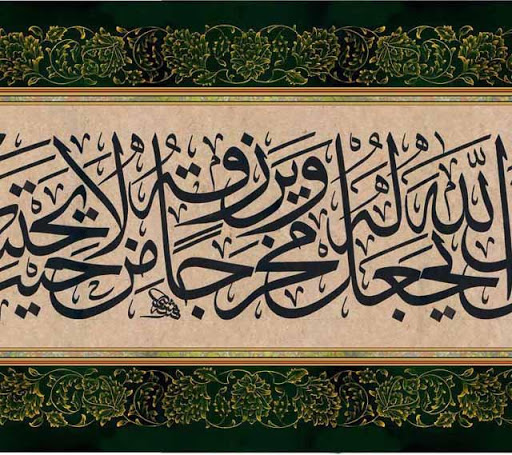 الله يجعل له مخرجا ويرزقه من حيث لا